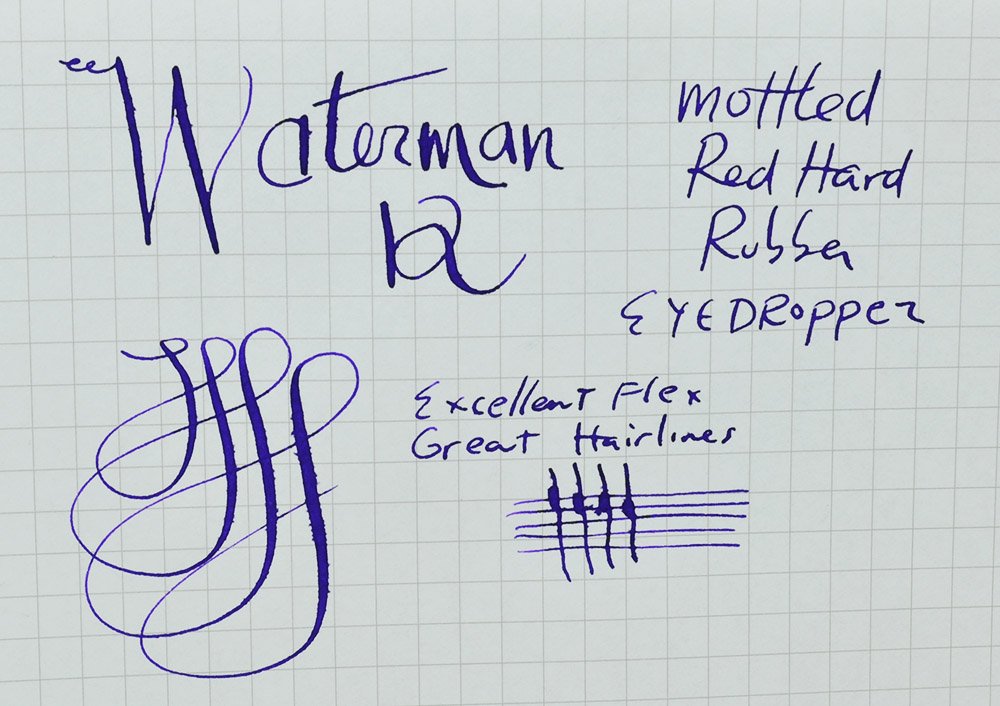 Waterman
12
mottled
Red Hard
Rubber
EYEDROPPER
Excellent Flex
Great Hairlines